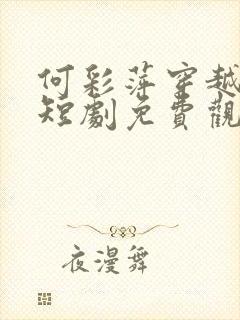 何彩萍穿越
短劇免費觀
夜漫舞